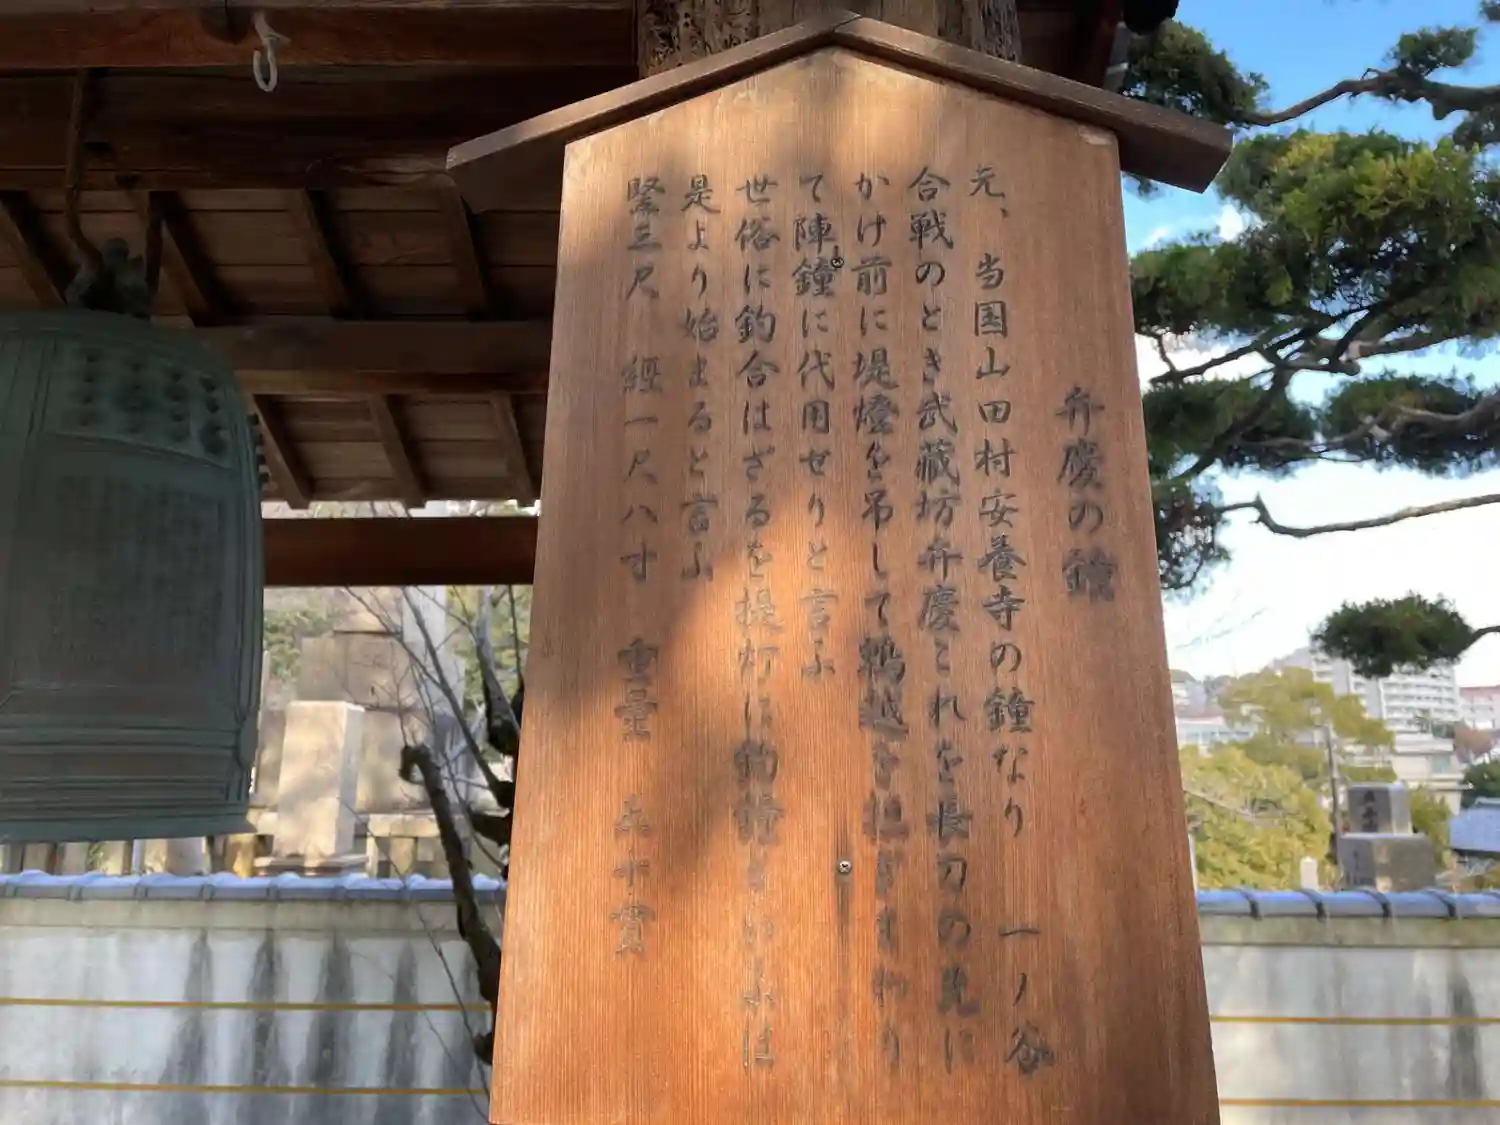 弁慶の鐘
元、当国山田村安養寺の鐘なり 一ノ谷
合戦のとき武蔵坊弁慶これを長刀の先に
かけ前に堤燈を吊して鵯越を担ぎまわり
て陣鐘に代用せりと言ふ
世俗に釣合はざるを提灯に釣鐘といふは
是より始まると言ふ
緊三尺 經一尺八寸 重量 五十貫